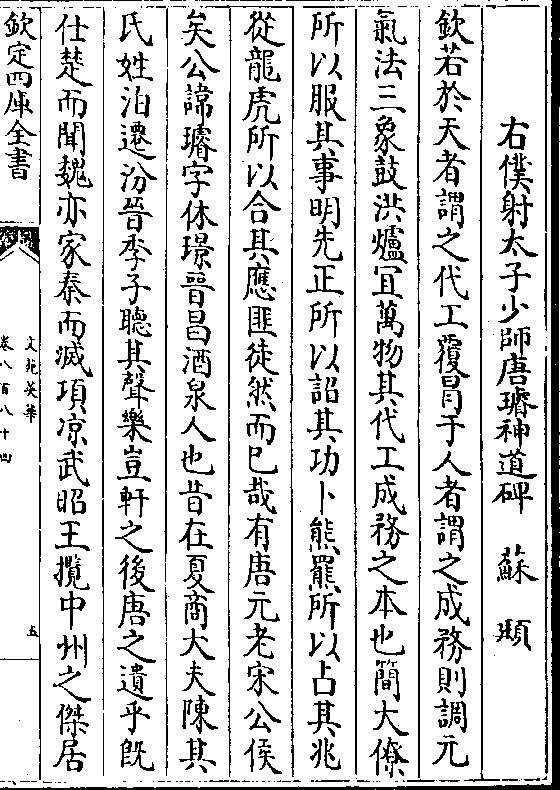 右僕射太子少師唐璿神道碑　蘇頲
欽若於天者謂之代工覆冒于人者謂之成務則調元
氣法三象鼓洪爐冝萬物其代工成務之本也簡大僚
所以服其事明先正所以詔其功卜熊羆所以占其兆
從龍虎所以合其應匪徒然而已哉有唐元老宋公俟
矣公諱璿字休璟晉昌酒泉人也昔在夏商大夫陳其
氏姓洎遷汾晉季子聽其聲樂豈軒之後唐之遺乎旣
仕楚而聞魏亦家秦而滅項凉武昭王攬中州之傑居
欽定四庫全書
文苑英華
卷八百八十四
五